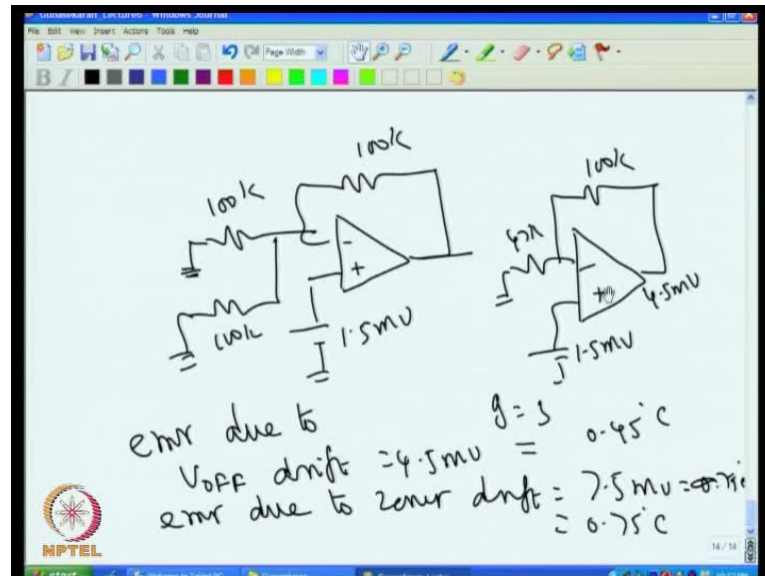 Gunasekaran_Lecture6 - Windows Journal
File Edit View Insert Actions Tools Help
Page Width
B I
100k
100k
100k
1.5mV
-
+
100k
47k
-
+
4.5mV
1.5mV
g = 3
error due to
VOFF drift = 4.5mV = 0.45°C
error due to zener drift = 7.5mV =
= 0.75°C
NPTEL
16 / 16
start